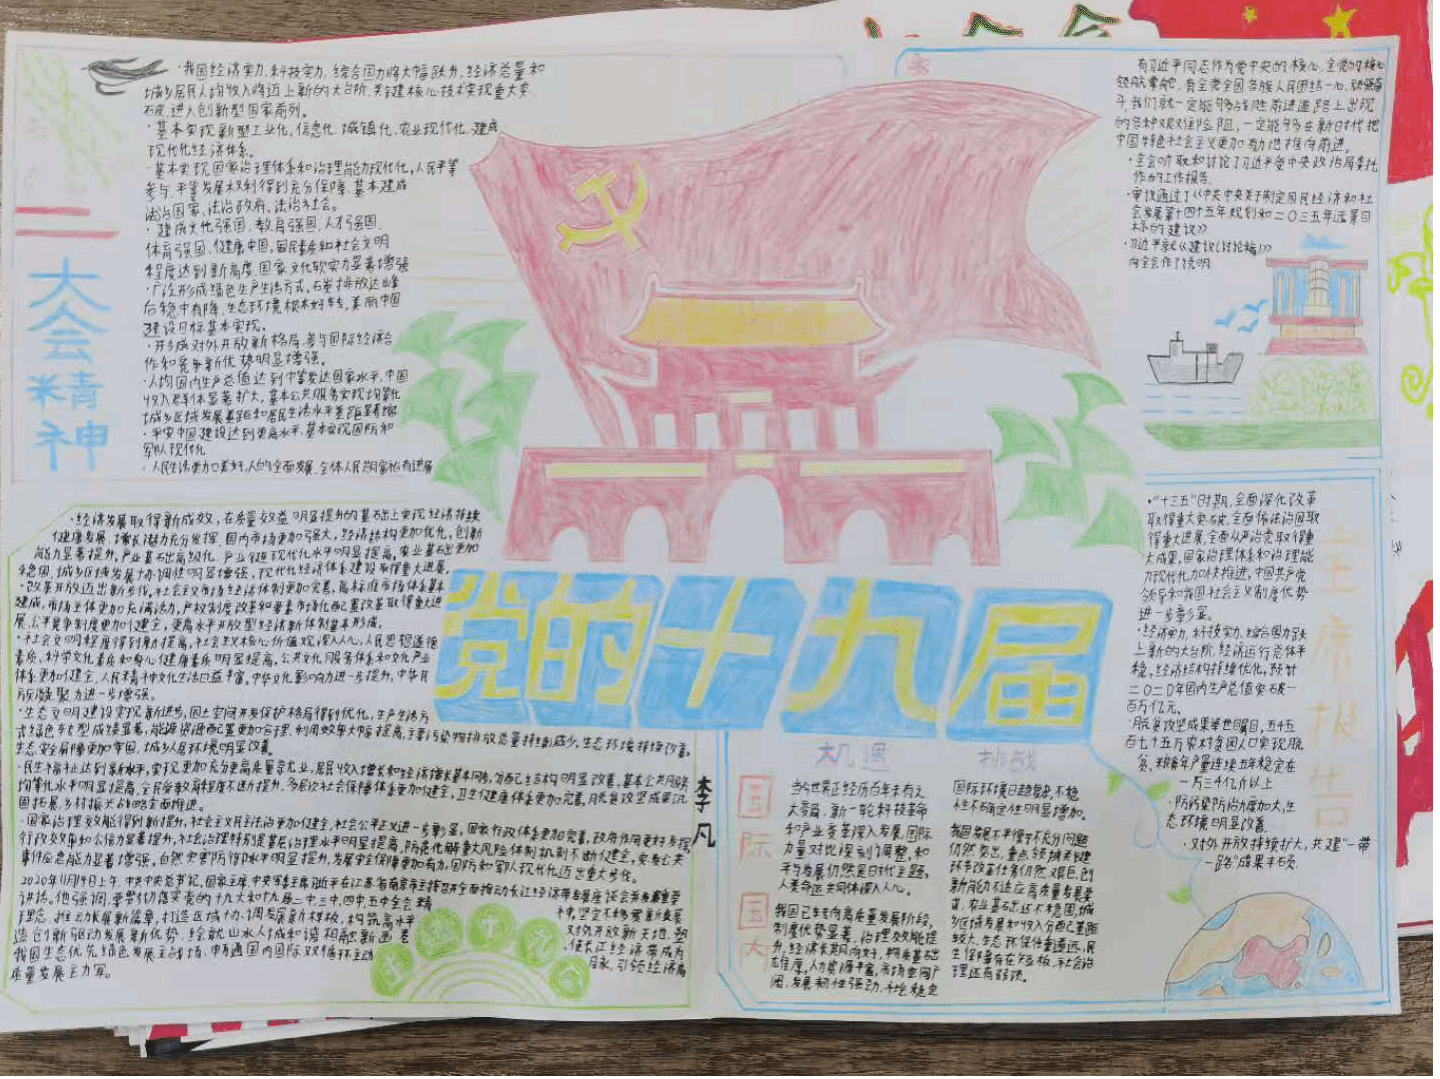 大会精神
·我国经济实力、科技实力、综合国力将大幅跃升,经济总量和
城乡居民人均收入将迈上新的大台阶,关键核心技术实现重大突
破,进入创新型国家前列。
·基本实现新型工业化、信息化、城镇化、农业现代化,建成
现代化经济体系。
·基本实现国家治理体系和治理能力现代化,人民平等
参与、平等发展权利得到充分保障,基本建成
法治国家、法治政府、法治社会。
·建成文化强国、教育强国、人才强国、
体育强国、健康中国,国民素质和社会文明
程度达到新高度,国家文化软实力显著增强
·广泛形成绿色生产生活方式,石炭排放达峰
后稳中有降,生态环境根本好转,美丽中国
建设目标基本实现。
·形成对外开放新格局,参与国际经济合
作和竞争新优势明显增强。
·人均国内生产总值达到中等发达国家水平,中国
收入群体显著扩大,基本公共服务实现均等化
城乡区域发展差距和居民生活水平差距显著缩
·平安中国建设达到更高水平,基本实现国防和
军队现代化
·人民生活更加美好,人的全面发展、全体人民共同富裕有进展
有习近平同志作为党中央的核心、全党的核心
领航掌舵,有全党全国各族人民团结一心、顽强奋
斗,我们就一定能够战胜前进道路上出现
的各种艰难险阻,一定能够在新时代把
中国特色社会主义更加有力地推向前进。
·全会听取和讨论了习近平受中央政治局委托
作的工作报告。
·审议通过了《中共中央关于制定国民经济和社
会发展第十四个五年规划和二〇三五年远景目
标的建议》
·习近平就《建议(讨论稿)》
向全会作了说明
党的十九届
·经济发展取得新成效,在质量效益明显提升的基础上实现经济持续
健康发展,增长潜力充分发挥,国内市场更加强大,经济结构更加优化,创新
能力显著提升,产业基础高级化、产业链现代化水平明显提高,农业基础更加
稳固,城乡区域发展协调性明显增强,现代化经济体系建设取得重大进展。
·改革开放迈出新步伐,社会主义市场经济体制更加完善,高标准市场体系基本
建成,市场主体更加充满活力,产权制度改革和要素市场化配置改革取得重大进
展,公平竞争制度更加健全,更高水平开放型经济新体制基本形成。
·社会文明程度得到新提高,社会主义核心价值观深入人心,人民思想道德
素质、科学文化素质和身心健康素质明显提高,公共文化服务体系和文化产业
体系更加健全,人民精神文化生活日益丰富,中华文化影响力进一步提升,中华民
族凝聚力进一步增强。
·生态文明建设实现新进步,国土空间开发保护格局得到优化,生产生活方
式绿色转型成绩显著,能源资源配置更加合理、利用效率大幅提高,主要污染物排放总量持续减少,生态环境持续改善,
生态安全屏障更加牢固,城乡人居环境明显改善。
·民生福祉达到新水平,实现更加充分更高质量就业,居民收入增长和经济增长基本同步,分配结构明显改善,基本公共服务
均等化水平明显提高,全民受教育程度不断提升,多层次社会保障体系更加健全,卫生健康体系更加完善,脱贫攻坚成果巩
固拓展,乡村振兴战略全面推进。
·国家治理效能得到新提升,社会主义民主法治更加健全,社会公平正义进一步彰显,国家行政体系更加完善,政府作用更好发挥,
行政效率和公信力显著提升,社会治理特别是基层治理水平明显提高,防范化解重大风险体制机制不断健全,突发公共
事件应急能力显著增强,自然灾害防御水平明显提升,发展安全保障更加有力,国防和军队现代化迈出重大步伐。
2020年11月14日上午,中共中央总书记、国家主席、中央军委主席习近平在江苏省南京市主持召开全面推动长江经济带发展座谈会并发表重要
讲话。他强调,要贯彻落实党的十九大和十九届二中、三中、四中、五中全会精
神,坚定不移贯彻新发展
理念,推动
造创新驱动发展新优势,绘就山水人城和谐相融新画卷
使长江经济带成为
我国生态优先绿色发展主战场、中畅通国内国际双循环主动
脉、引领经济高
质量发展主力军。
李凡
机遇
国际
当今世界正经历百年未有之
大变局,新一轮科技革命
和产业变革深入发展,国际
力量对比深刻调整,和
平与发展仍然是时代主题,
人类命运共同体深入人心。
国内
我国已转向高质量发展阶段,
制度优势显著,治理效能提
升,经济长期向好,物质基础
雄厚,人力资源丰富,市场空间广
阔,发展韧性强劲,社会稳定
挑战
国际环境日趋复杂,不稳
性不确定性明显增加。
我国发展不平衡不充分问题
仍然突出,重点领域关键
环节改革任务仍然艰巨,创
新能力不适应高质量发展要
求,农业基础还不稳固,城
乡区域发展和收入分配差距
较大,生态环保任重道远,民
生保障存在短板,社会治
理还有弱项。
主席报告
·“十三五”时期,全面深化改革
取得重大突破,全面依法治国取
得重大进展,全面从严治党取得重
大成果,国家治理体系和治理能
力现代化加快推进,中国共产党
领导和我国社会主义制度优势
进一步彰显。
·经济实力、科技实力、综合国力跃
上新的大台阶,经济运行总体平
稳,经济结构持续优化,预计
二〇二〇年国内生产总值突破一
百万亿元。
·脱贫攻坚成果举世瞩目,五千五
百七十五万农村贫困人口实现脱
贫,粮食年产量连续五年稳定在
一万三千亿斤以上
·防污染防治力度加大,生
态环境明显改善。
·对外开放持续扩大,共建“一带
一路”成果丰硕